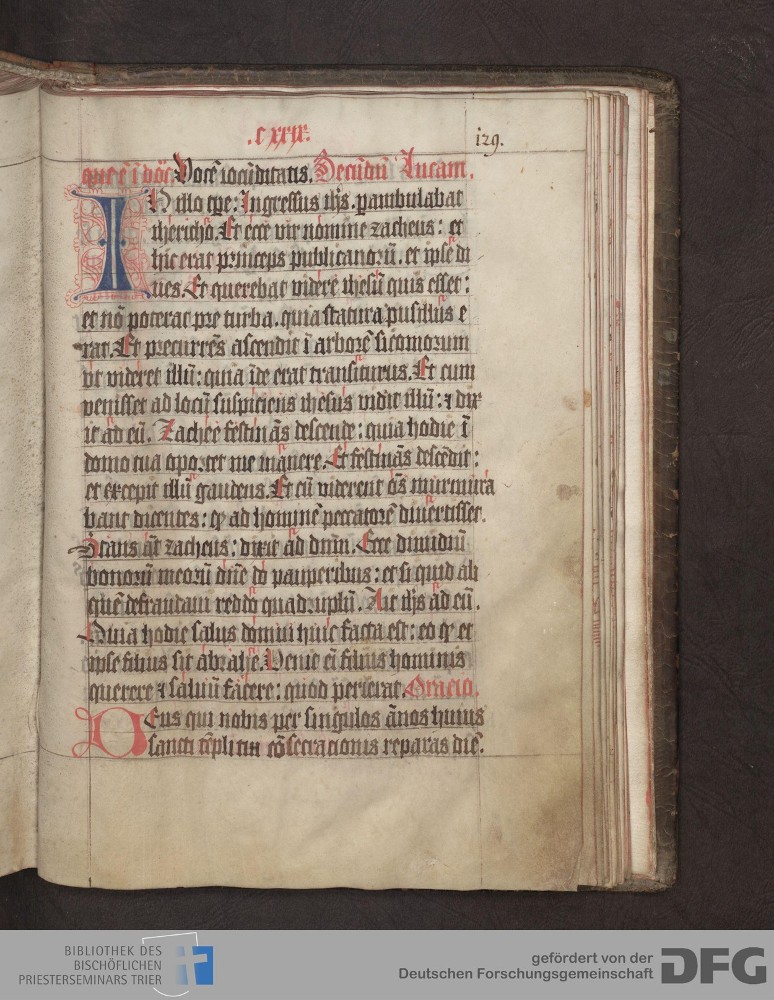 .cxxix.
129.
que ē ī dōc. Vocē iocūditatis. Secūdū Lucam.
IN illo tp̄e: Ingressus ih̄s. p̄ambulabat
iherichō. Et ecce vir nomine zacheus: et
hic erat princeps publicanorū. et ipse di
ues. Et querebat videre ihesū quis esset:
et nō poterat pre turba. quia statura pusillus e
rat. Et precurrēs ascendit ī arborē sicomorum
vt videret illū: quia īde erat transiturus. Et cum
venisset ad locū suspiciens ihesus vidit illū: ⁊ dix
it ad eū. Zachee festinās descende: quia hodie ī
domo tua oportet me manere. Et festinās descēdit:
et excepit illū gaudens. Et cū viderent oēs murmura
bant dicentes: qꝫ ad hominē peccatorē diuertisset.
Stans aūt zacheus: dixit ad dnm̄. Ecce dimidiū
bonorū meorū dn̄e do pauperibus: et si quid ali
quē defraudaui reddo quadruplū. Ait ih̄s ad eū.
Quia hodie salus domui huic facta est: eo qꝫ et
ipse filius sit abrahe. Venit ei filius hominis
querere ⁊ saluū facere: quod perierat. Oracio.
DEus qui nobis per singulos ānos huius
sancti tēpli tui cōsecrationis reparas diē.
BIBLIOTHEK DES
BISCHÖFLICHEN
PRIESTERSEMINARS TRIER
gefördert von der
Deutschen Forschungsgemeinschaft
DFG